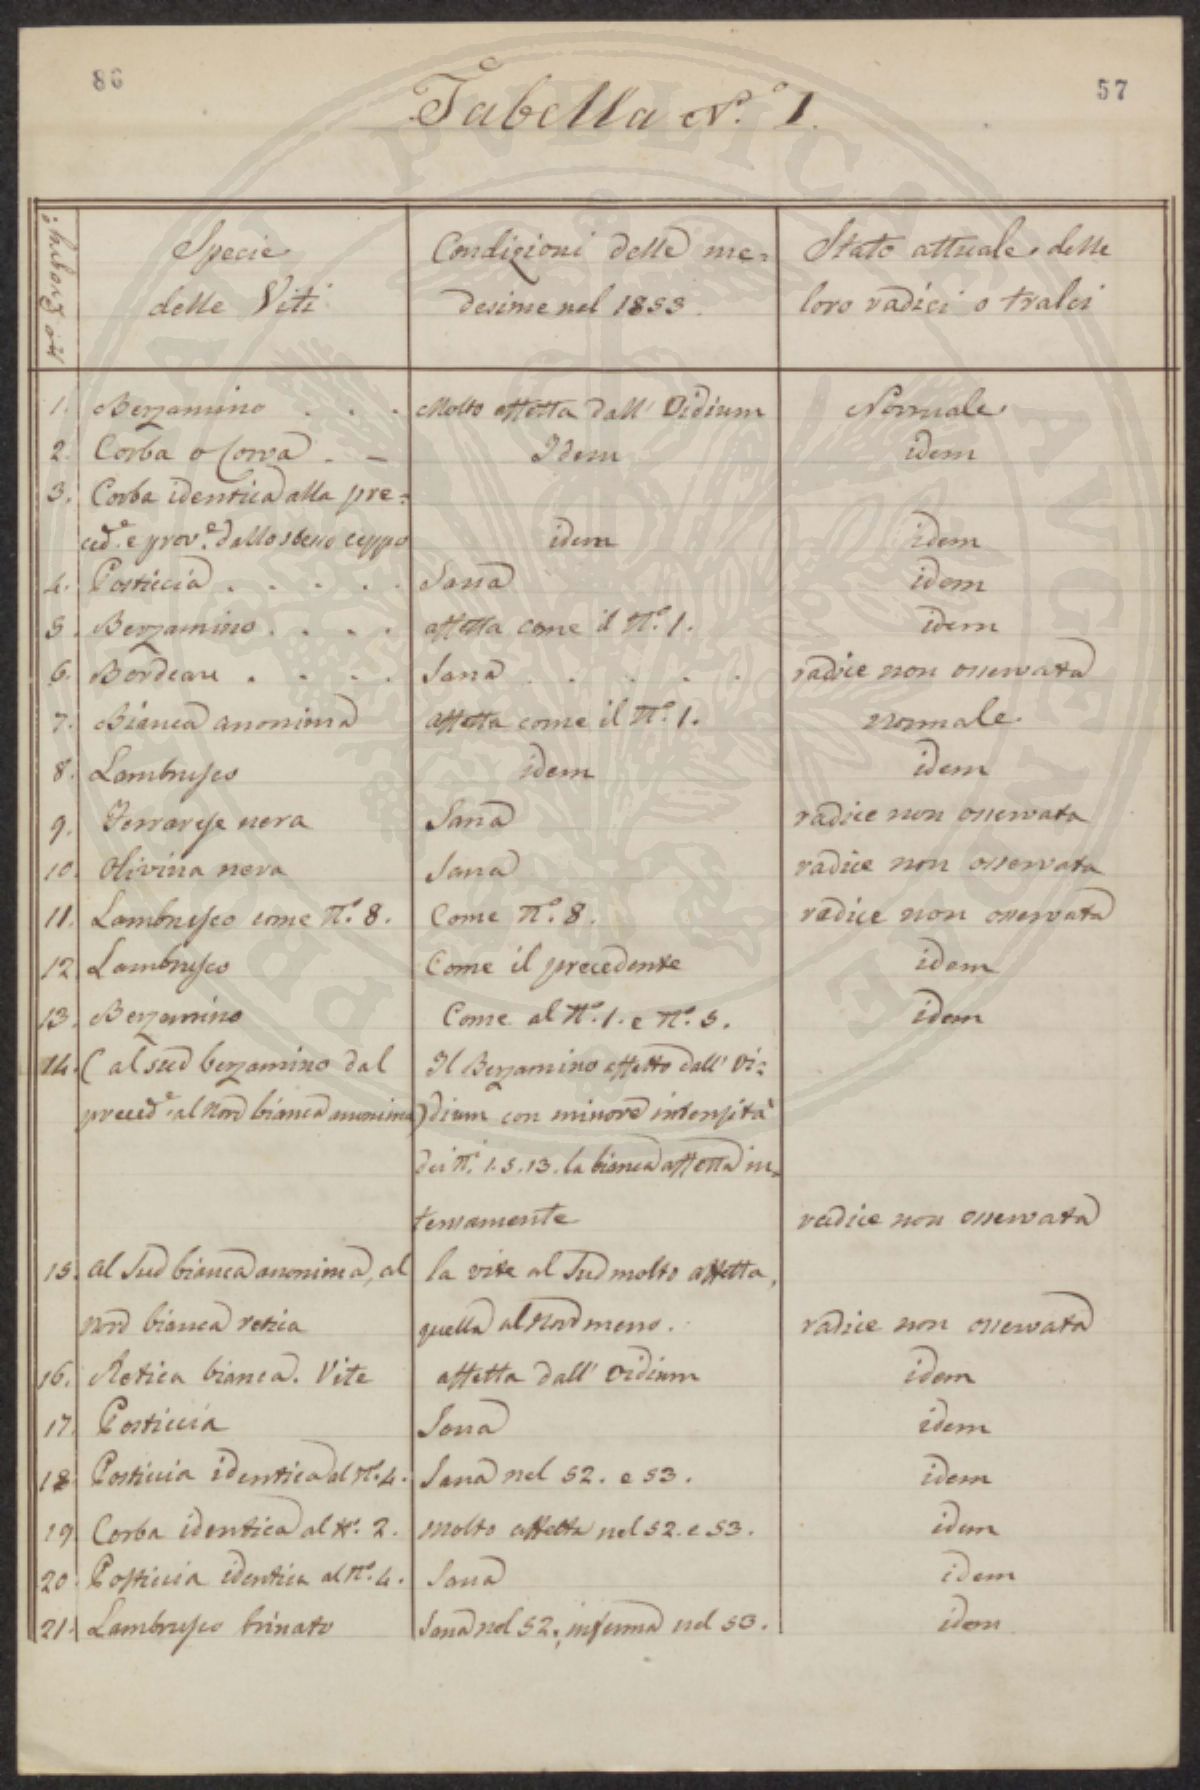 86
57
Tabella N.° 1.
Specie
delle Viti
Condizioni delle me=
desime nel 1853.
Stato attuale delle
loro radici o tralci
1. Berzamino . . . Molto affetta dall' Oidium Normale
2. Corba o Corva . – Idem idem
3. Corba identica alla pre=
ced.e e prov.e dallo stesso ceppo idem idem
4. Posticcia . . . . . Sana idem
5. Berzamino . . . . affetta come il N.° 1. idem
6. Bordeau . . . . Sana . . . . . radice non osservata
7. Bianca anonima affetta come il N.° 1. normale
8. Lambrusco idem idem
9. Ferrarese nera Sana radice non osservata
10. Olivina nera Sana radice non osservata
11. Lambrusco come N.° 8. Come N.° 8. radice non osservata
12 Lambrusco Come il precedente idem
13. Berzamino Come al N.° 1. e N.° 5. idem
14. ( al sud berzamino dal Il Berzamino affetto dall' Oi=
preced.e al Nord bianca anonima) dium con minore intensità
dei N.i 1. 5. 13. la bianca affetta in=
tensamente radice non osservata
15. al Sud bianca anonima, al la vite al Sud molto affetta,
Nord bianca retica quella al Nord meno. radice non osservata
16. Retica bianca. Vite affetta dall' Oidium idem
17. Posticcia Sana idem
18 Posticcia identica al N.° 4. Sana nel 52. e 53. idem
19 Corba identica al N.° 2. Molto affetta nel 52. e 53. idem
20. Posticcia identica al N.° 4. Sana idem
21. Lambrusco brinato Sana nel 52., inferma nel 53. idem